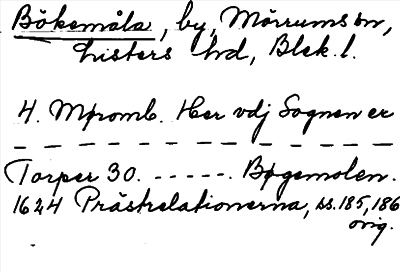 Bökemåla, by, Mörrums sn,
Listers hd, Blek. l.
4. Mpromb. Her vdj Sognen er
— — — — — — — — — — — — —
Torper 30. - - - - - . Bøgemolen.
1624 Prästrelationerna, ss. 185, 186
orig.